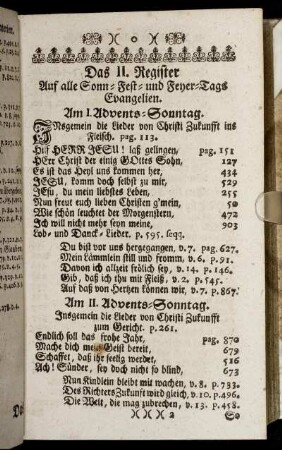 Das II. Register
Auf alle Sonn- Fest- und Feyer-Tags
Evangelien.
Am I. Advents-Sonntag.
INsgemein die Lieder von Christi Zukunfft ins
Fleisch. pag. 113.
Hilf HERR JESU! laß gelingen, pag. 151
HErr Christ der einig GOttes Sohn, 127
Es ist das Heyl uns kommen her, 434
JESU, komm doch selbst zu mir, 529
JEsu, du mein liebstes Leben, 255
Nun freut euch lieben Christen g'mein, 50
Wie schön leuchtet der Morgenstern, 472
Ich will nicht mehr seyn meine, 903
Lob- und Danck-Lieder. p. 595. seqq.
Du bist vor uns hergegangen, v. 7. pag. 627.
Mein Lämmlein still und fromm, v. 6. p. 91.
Davon ich allzeit frölich sey, v. 14. p. 146.
Gib, daß ich thu mit Fleiß, v. 2. p. 545.
Auf daß von Hertzen können wir, v. 7. p. 867.
Am II. Advents-Sonntag.
Insgemein die Lieder von Christi Zukunfft
zum Gericht. p. 261.
Endlich soll das frohe Jahr, pag. 870
Mache dich mein Geist bereit, 673
Schaffet, daß ihr seelig werdet, 516
Ach! Sünder, sey doch nicht so blind, 673
Nun Kindlein bleibt mit wachen, v. 8. p. 733.
Des Richters Zukunft wird gleich, v. 10. p. 496.
Die Welt, die mag zubrechen, v. 13. p. 458.
)()()( 2 So